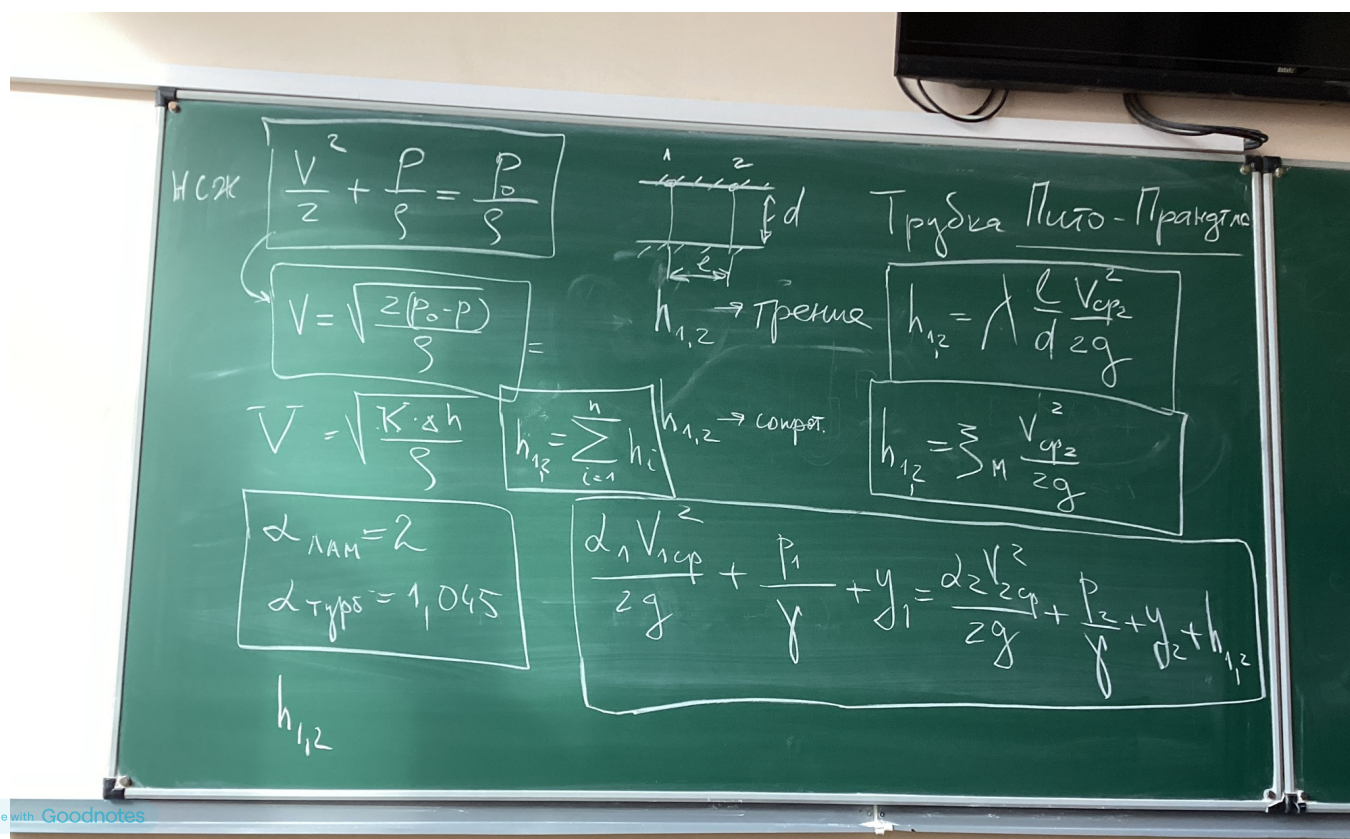 НСЖ V²/2 + P/ρ = P₀/ρ
1 2
d
l
Трубка Пито-Прандтля
V = √(2(P₀-P)/ρ) =
h₁,₂ → трение
h₁,₂ = λ l/d V²ср₂/2g
V = √(K·Δh/ρ)
h₁,₂ = Σⁿᵢ₌₁ hᵢ
h₁,₂ → сопрот.
h₁,₂ = ξм V²ср₂/2g
α лам = 2
α турб = 1,045
α₁V²₁ср/2g + P₁/γ + y₁ = α₂V²₂ср/2g + P₂/γ + y₂ + h₁,₂
h₁,₂
e with Goodnotes